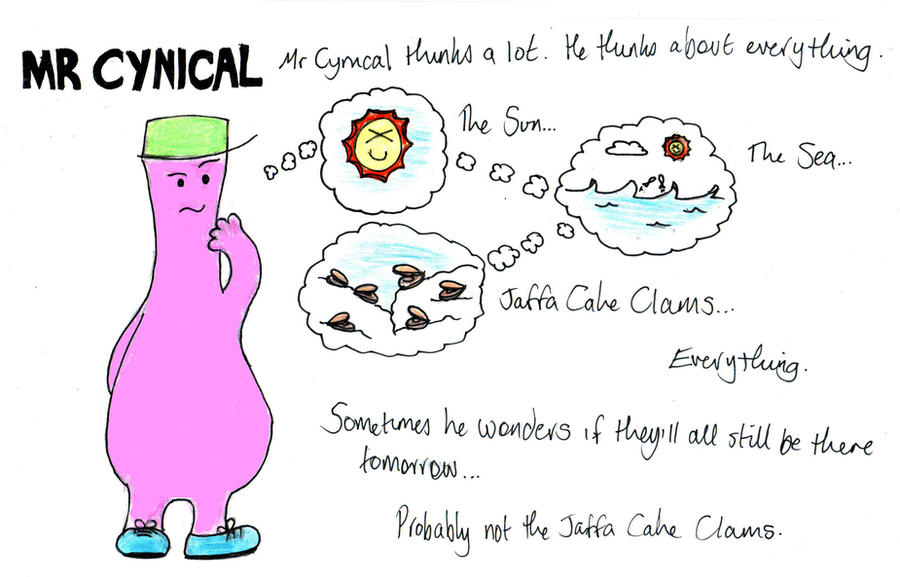 MR CYNICAL
Mr Cynical thinks a lot. He thinks about everything.
The Sun...
The Sea...
Jaffa Cake Clams...
Everything.
Sometimes he wonders if they'll all still be there
tomorrow...
Probably not the Jaffa Cake Clams.